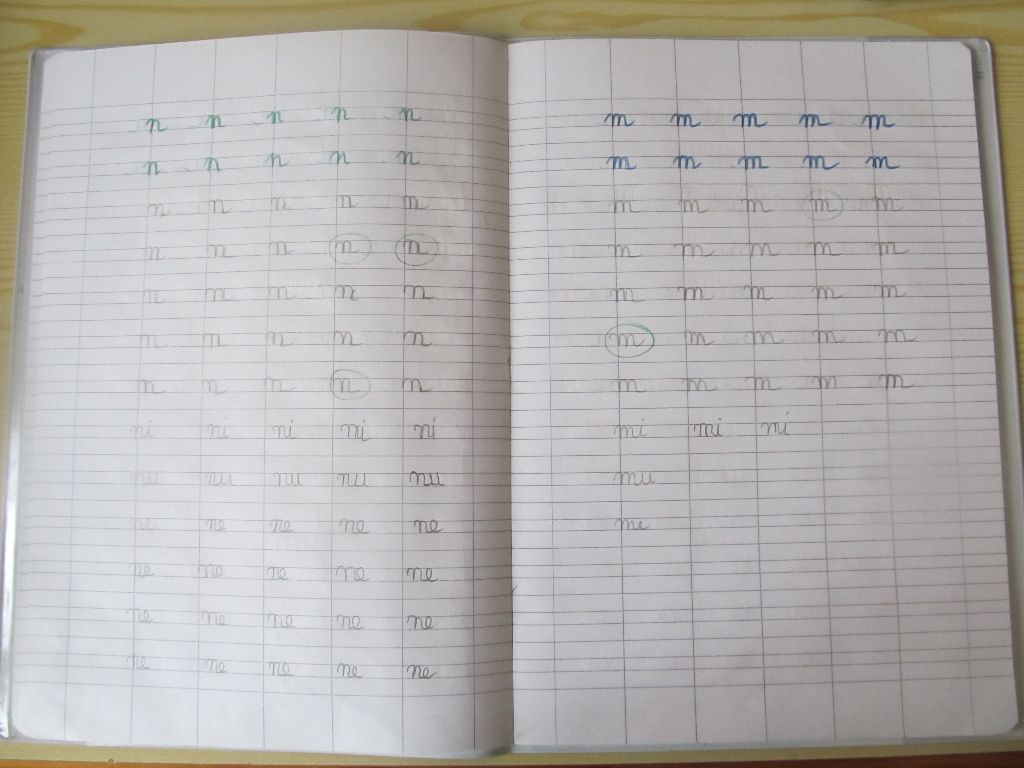 n n n n n
n n n n n
n n n n n
n n n n n
n n n n n
n n n n n
n n n n n
ni ni ni ni ni
nu nu nu nu nu
ne ne ne ne ne
ne ne ne ne ne
ne ne ne ne ne
ne ne ne ne ne
m m m m m
m m m m m
m m m m m
m m m m m
m m m m m
m m m m m
m m m m m
mi mi mi
mu
me